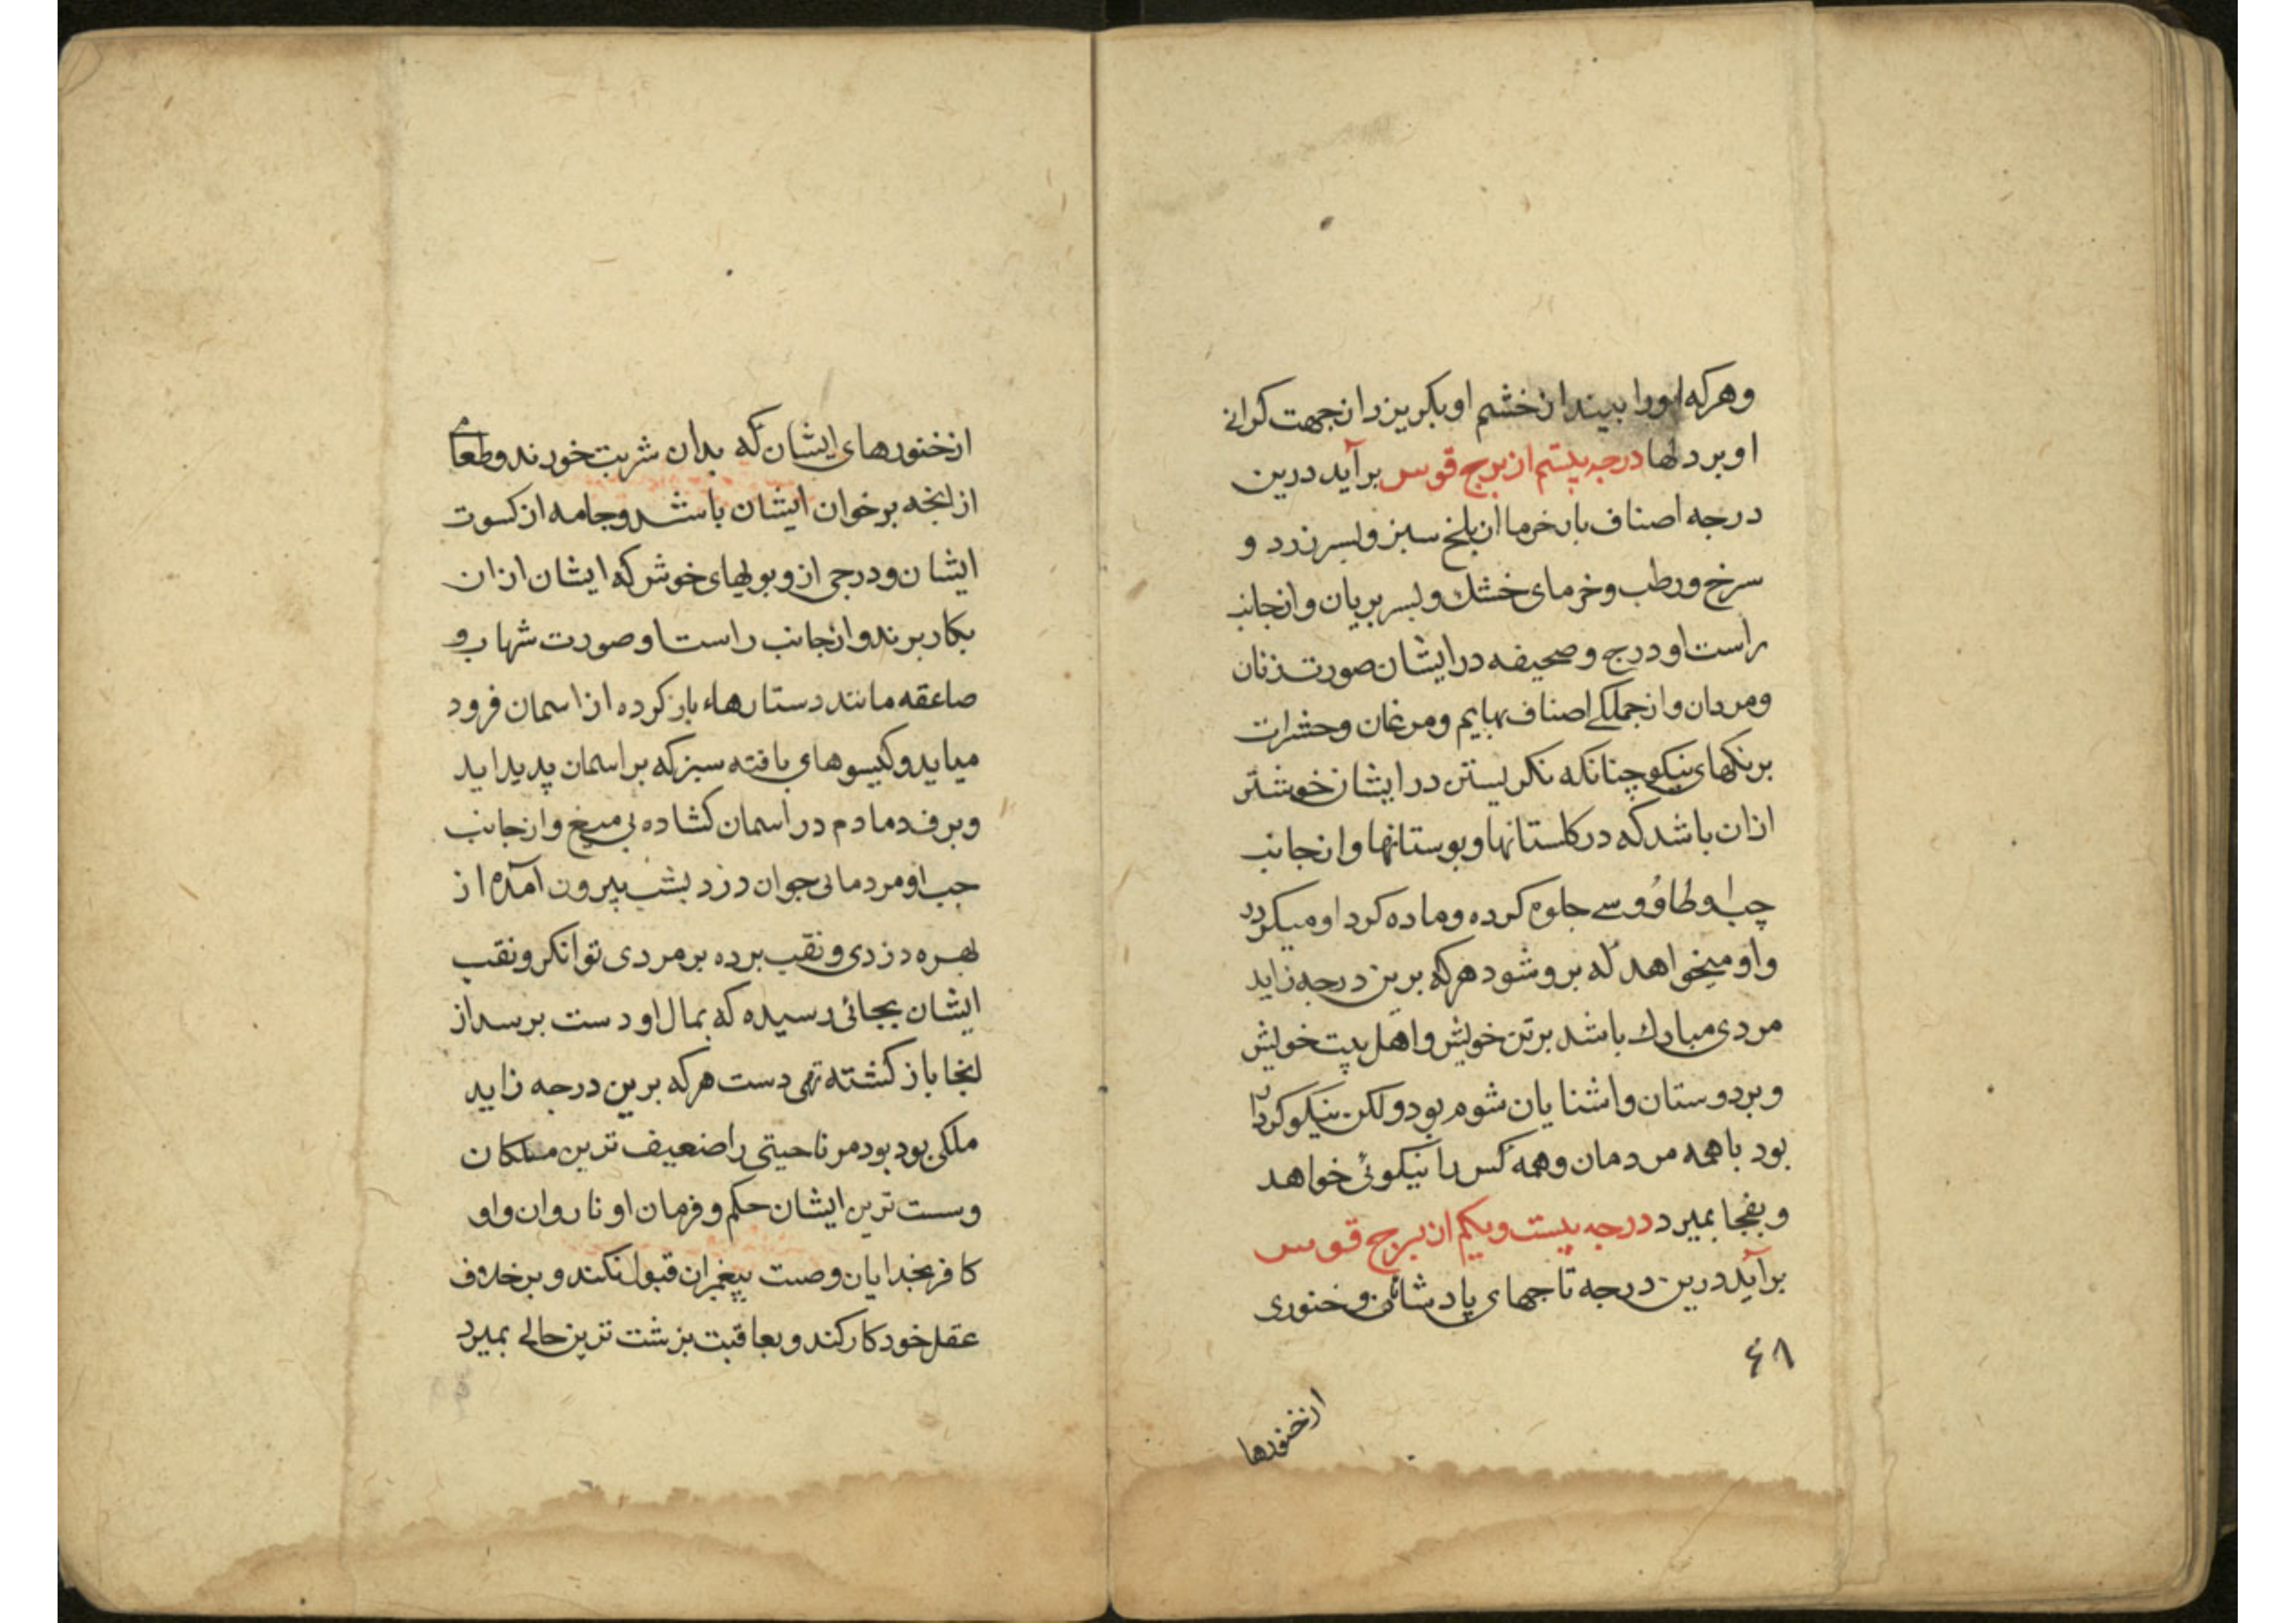 وهرکه اورا بیند از خشم او بکریزد ازجهت کرانی
او بر دلها درجه بیستم از برج قوس برآید درین
درجه اصناف بار خرما از بلخ سبز وبسر زرد و
سرخ ورطب وخرمای خشك وبسر بریان وازجانب
راست او درج وصحیفه در ایشان صورت زنان
ومردان وازجملکی اصناف بهایم ومرغان وحشرات
برنکهای نیکو چنانکه نکریستن در ایشان خوشتر
ازان باشد که در کلستانها وبوستانها وازجانب
چپ او طاوُوسی جلوه کرده وماده کرد او میکردد
واو میخواهد که برو شود هرکه برین درجه زاید
مردی مبارك باشد برتن خویش واهل بیت خویش
وبر دوستان واشنایان شوم بود ولکن نیکو کردار
بود باهمه مردمان وهمه کس را نیکوئی خواهد
وبفجا بمیرد درجه بیست ویکم از برج قوس
برآید درین درجه تاجهای پادشائان وخنوری
۶۸
ازخنورها
ازخنورهای ایشان که بدان شربت خورند وطعامی
ازانجه برخوان ایشان باشد وجامه از کسوت
ایشان ودرجی ازو بویهای خوش که ایشان ازان
بکار برند وازجانب راست او صورت شهاب و
صاعقه مانند دستارهاء باز کرده از اسمان فرود
میاید وکیسوهای بافته سبز که بر اسمان پدید اید
وبرف دمادم در اسمان کشاده بی میغ وازجانب
جب او مردمانی جوان دزد بشب بیرون آمده از
بهره دزدی ونقب برده بر مردی توانکر ونقب
ایشان بجائی رسیده که بمال او دست برسد از
انجا باز کشته تهی دست هرکه برین درجه زاید
ملکی بود بود مر ناحیتی را ضعیف ترین ملکان
وسست ترین ایشان حکم وفرمان او ناروان واو
کافر بخدایان وصیت پیغمبران قبول نکند وبر خلاف
عقل خود کار کند وبعاقبت بزشت ترین حالی بمیرد